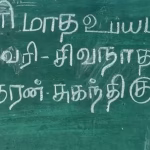 ரி மாத உபய
வரி - சிவநாத
தரன் - சுகந்தி கு